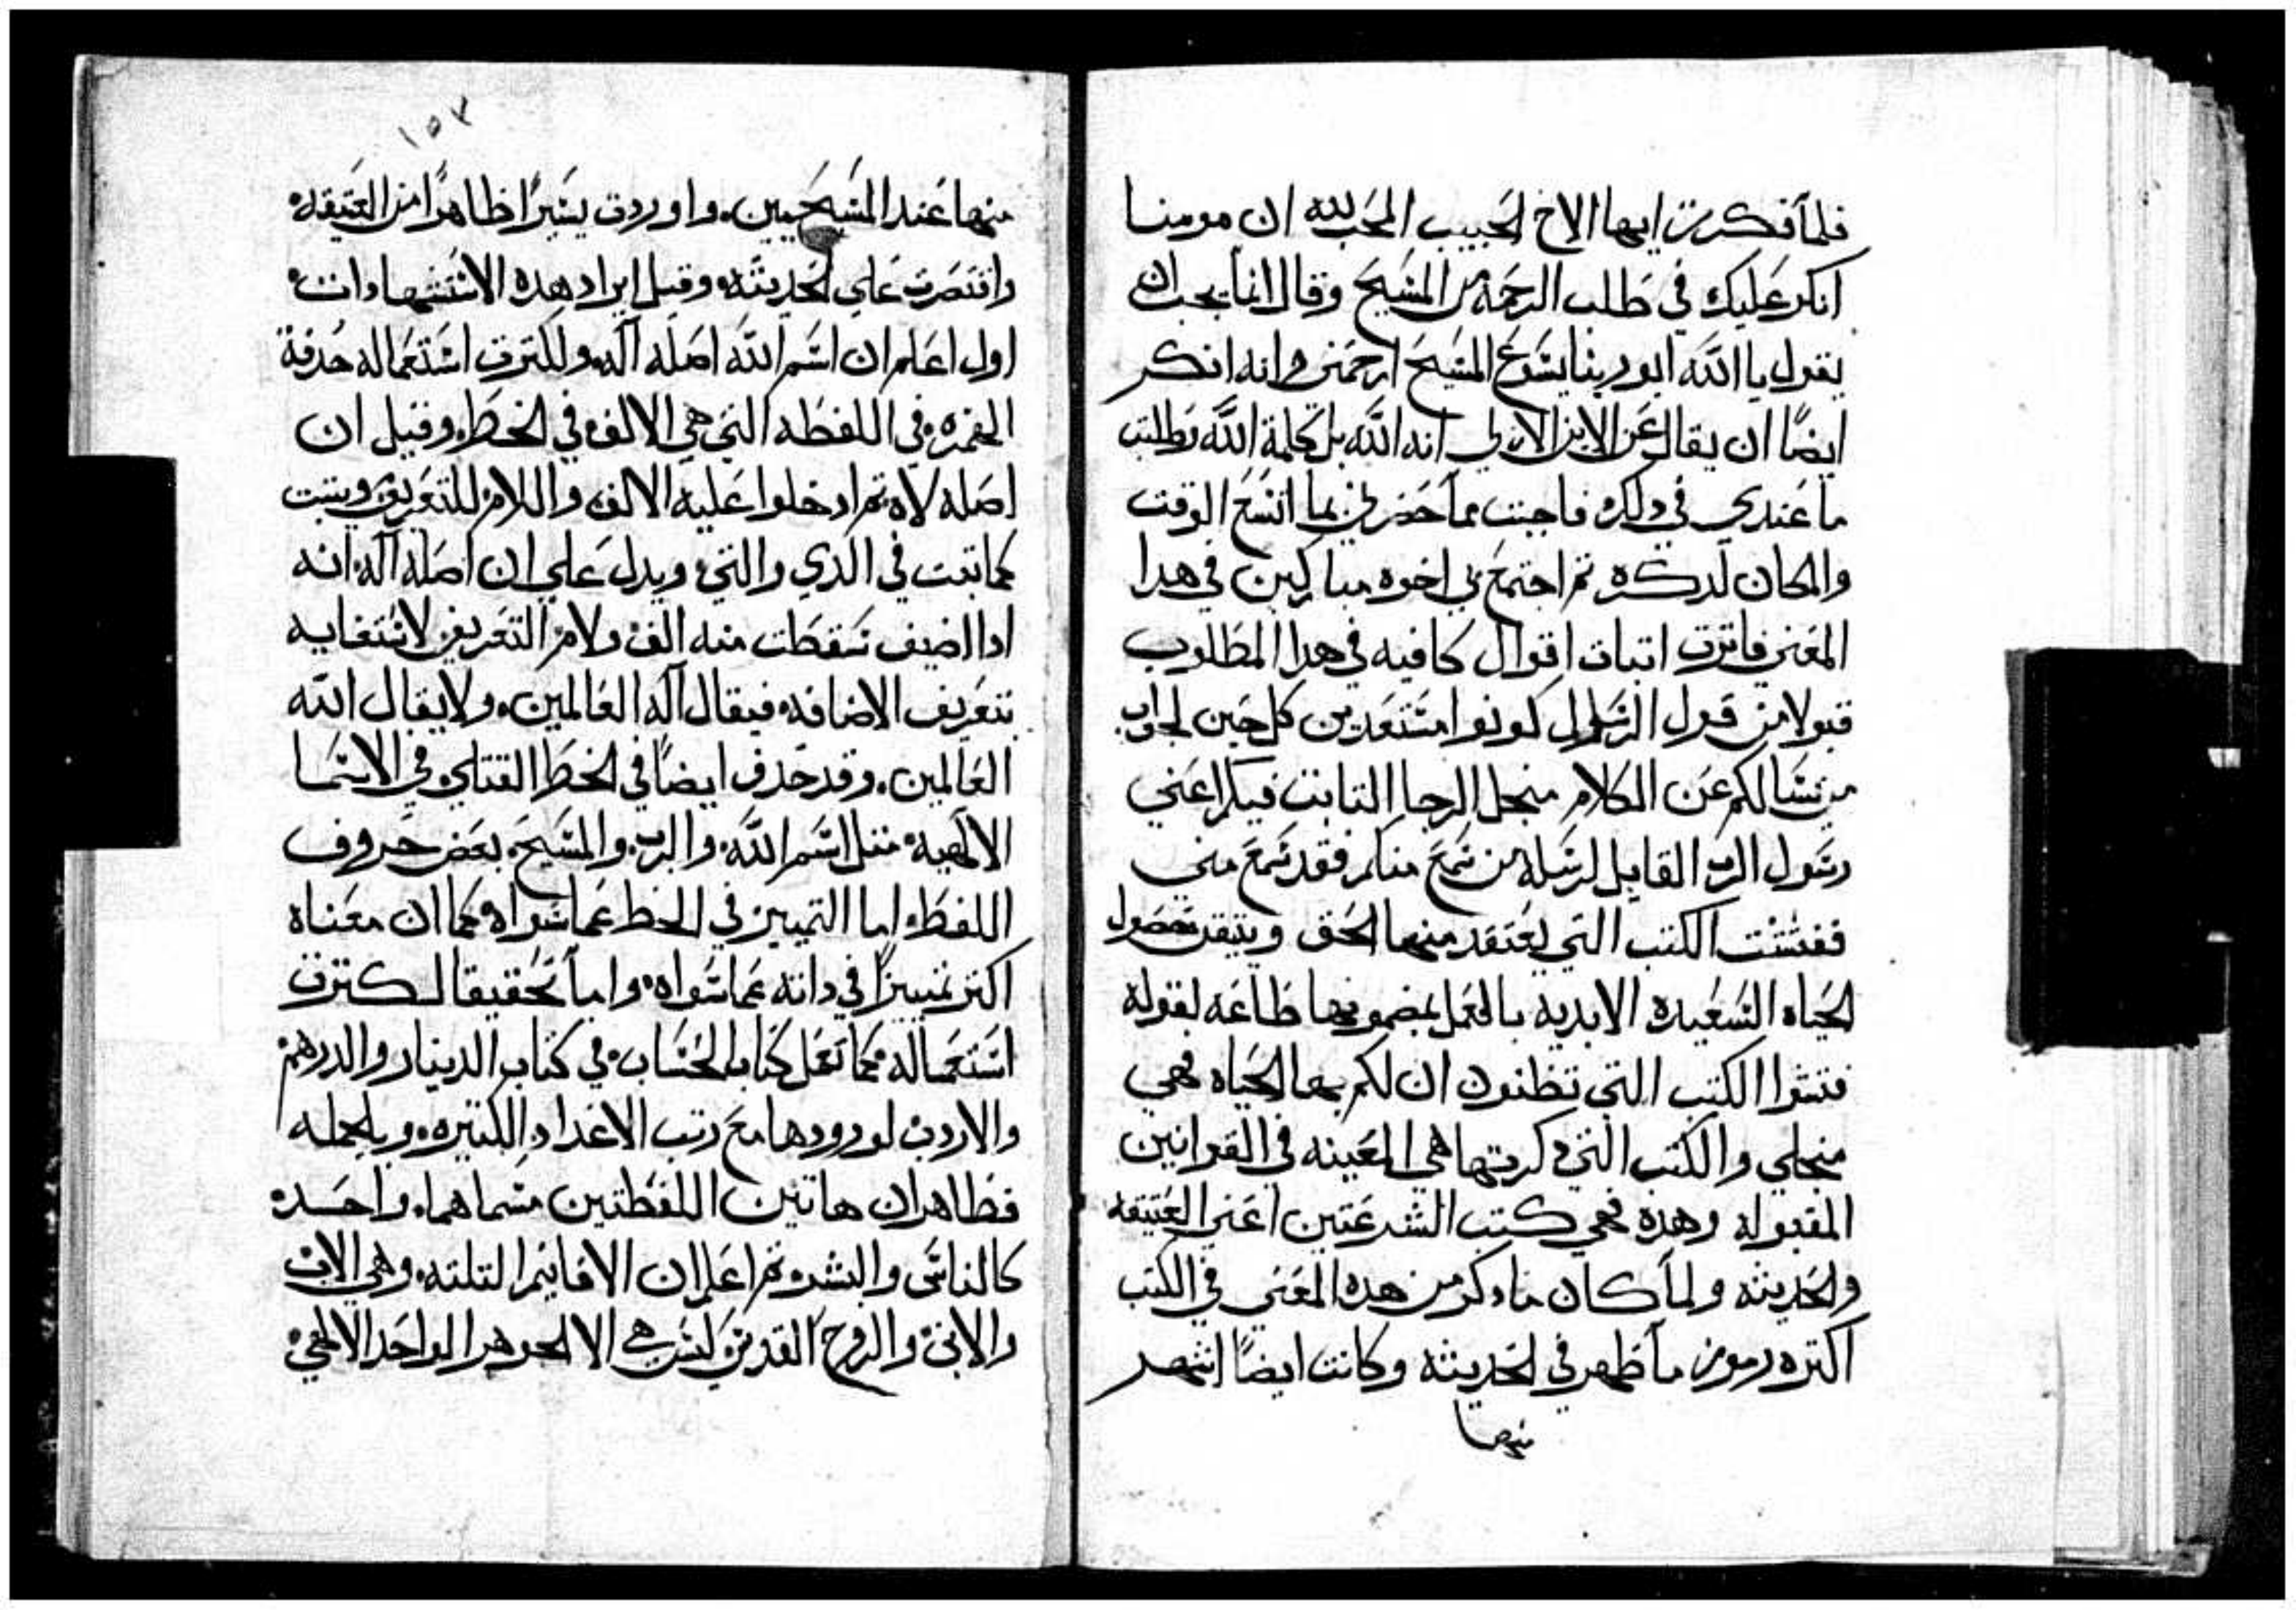 فلما فكرت ايها الاخ الحبيب المحب لله ان مومنا
انكر عليك في طلب الرحمه من المسيح وقال انما يجب ان
يقول يا الله ابو ربنا يسوع المسيح ارحمني وانه انكر
ايضًا ان يقال عن الابن الازلي انه الله بل كلمة الله وطلبت
ما عندي في دلك فاجبت مما حضرني بما اتسع الوقت
والمكان لدكره تم اجتمع بي اخوه مباركين في هدا
المعني فاترت اتبات اقوال كافيه في هدا المطلوب
قبولا من قول الرسول كونوا مستعدين كل حين لجواب
من يسالكم عن الكلام منجل الرجا التابت فيكم اعني
رسول الرب القايل لرسله من سمع منكم فقد سمع مني
ففتشت الكتب التي يعتقد منها الحق ويتيقن تحصول
الحياه السعيده الابديه بالعمل بمضمونها طاعه لقوله
فتشوا الكتب التي تظنون ان لكم بها الحياه فهي
منجلي والكتب التي دكرتها هي المعينه في القوانين
المقبوله وهده فهي كتب الشرعتين اعني العتيقه
والحديثه ولما كان مادكر من هده المعني في الكتب
اكتره رموز ما ظهر في الحديثه وكانت ايضًا اشهر
منها
١٥٣
منها عند المسيحيين. واوردت يسيرًا ظاهرًا من العتيقه
واقتصرت علي الحديثه وقبل ايراد هده الاستشهادات
اول اعلم ان اسم الله اصله آله ولكترت استعماله حدفة
الهمزه في اللفظه التي هي الالف في الخط وقيل ان
اصله لاه تم ادخلوا عليه الالف واللام للتعريف ويتبت
كما تبت في الدي والتي ويدل علي ان اصله آله انه
ادا اضيف سقطت منه الف ولام التعريف لاستغنايه
بتعريف الاضافه فيقال آله العالمين. ولا يقال الله
العالمين. وقد حدف ايضًا في الخط القبتلي في الاسما
الالهيه متل اسم الله. والرب. والمسيح. بعض حروف
اللفظ اما التمييز في الخط عما سواه كما ان معناه
اكتر تمييزًا في داته عما سواه. واما تحقيقا لكترت
استعماله كما تعمل كتاب الحساب في كتاب الدينار والدرهم
والاردب لورودها مع رتب الاعداد الكتيره. وبالجمله
فظاهر ان هاتين اللفظتين مسماهما. واحده
كالناس والبشر تم اعلم ان الاقانيم التلته. وهي الاب
والابن والروح القدس ليس هي الا الجوهر الواحد الالهي